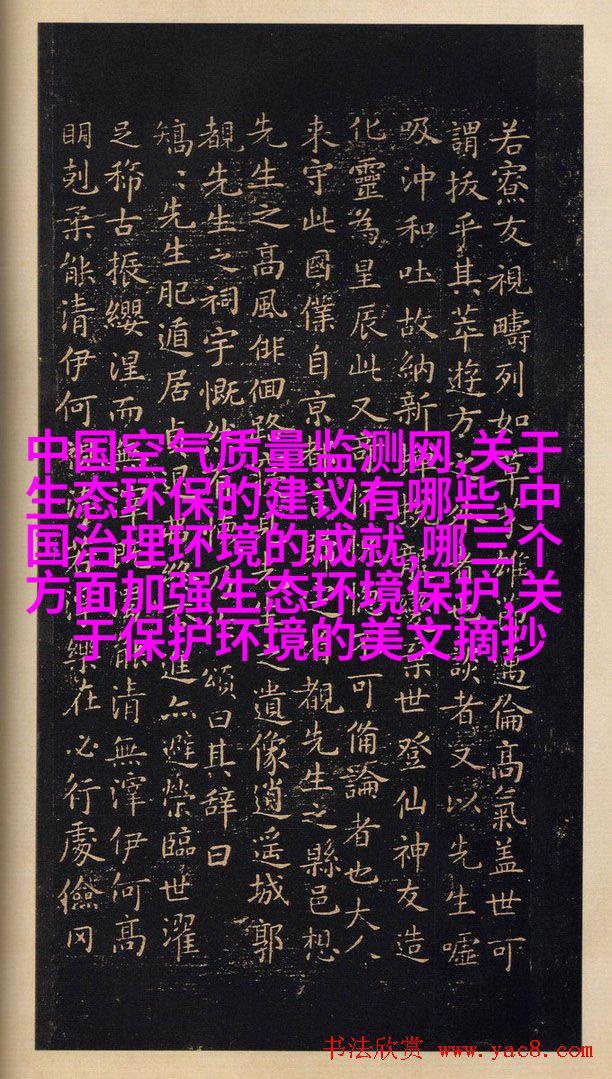 若寮友視疇列如草雄節邁倫高氣蓋世可
謂拔乎其萃遊方之者談者又以先生噓
吸沖和吐故納新棄世登仙神友造
化靈為星辰此又可備論者也大人
来守此國僕自京都覩先生之縣邑想
先生之高風俳佪路先生之遺像逍遥城郭
覩先生之祠宇慨然頌曰其辭曰
矯〻先生肥遁居貞進亦避榮臨世濯
足稀古振纓涅而無能清無滓伊何高
明剋柔能清伊何樂在必行處儉罔
中国空气质量监测网,关于
生态环保的建议有哪些,中
国治理环境的成就,哪三个
方面加强生态环境保护,关
于保护环境的美文摘抄
书法欣赏 www.yac8.com